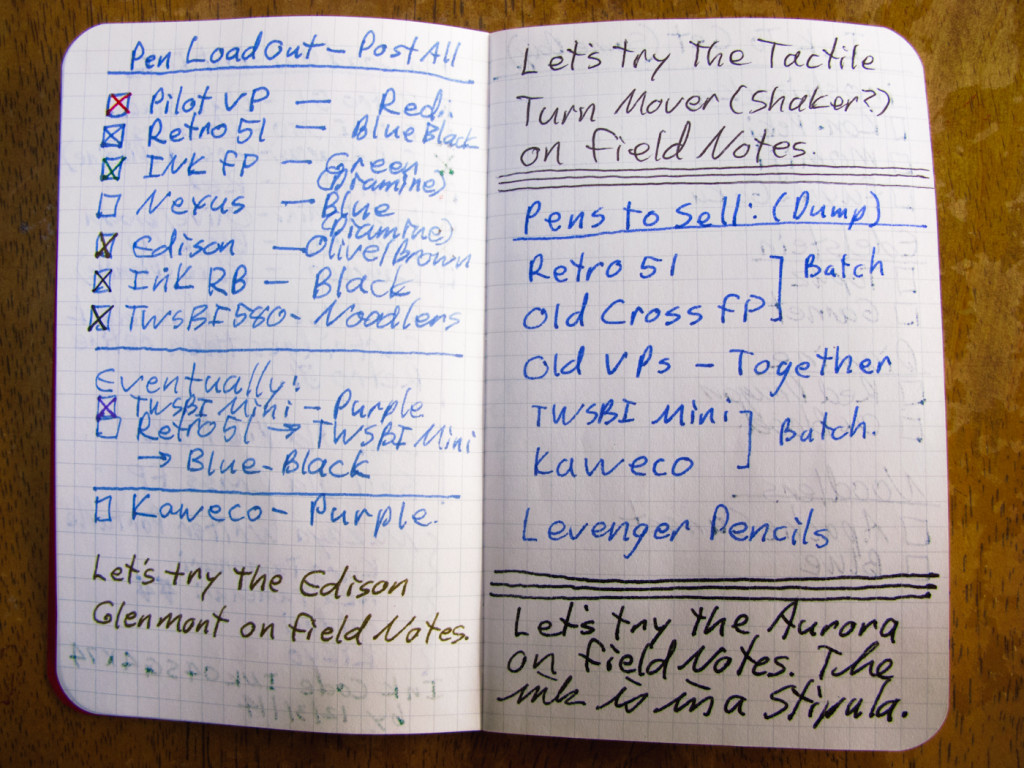 Pen LoadOut - Post All
☒ Pilot VP — Red
☒ Retro 51 — Blue Black
☒ INK FP — Green
(Diamine)
☐ Nexus — Blue
(Diamine)
☒ Edison — Olive/brown
☒ INK RB — Black
☒ TWSBI 580 - Noodlers
Eventually!
☒ TWSBI Mini - Purple
☐ Retro 51 → TWSBI Mini
→ Blue-Black
☐ Kaweco - Purple
Let's try the Edison
Glenmont on Field Notes.
Let's try the Tactile
Turn Mover (Shaker?)
on Field Notes.
Pens to Sell: (Dump)
Retro 51
Batch
Old Cross FP
Old VPs - Together
TWSBI Mini
Batch.
Kaweco
Levenger Pencils
Let's try the Aurora
on Field Notes. The
ink is in a Stipula.